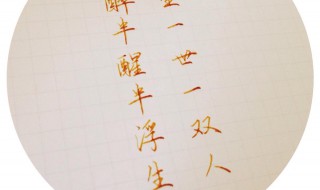 生一世一双人
醉半醒半浮生